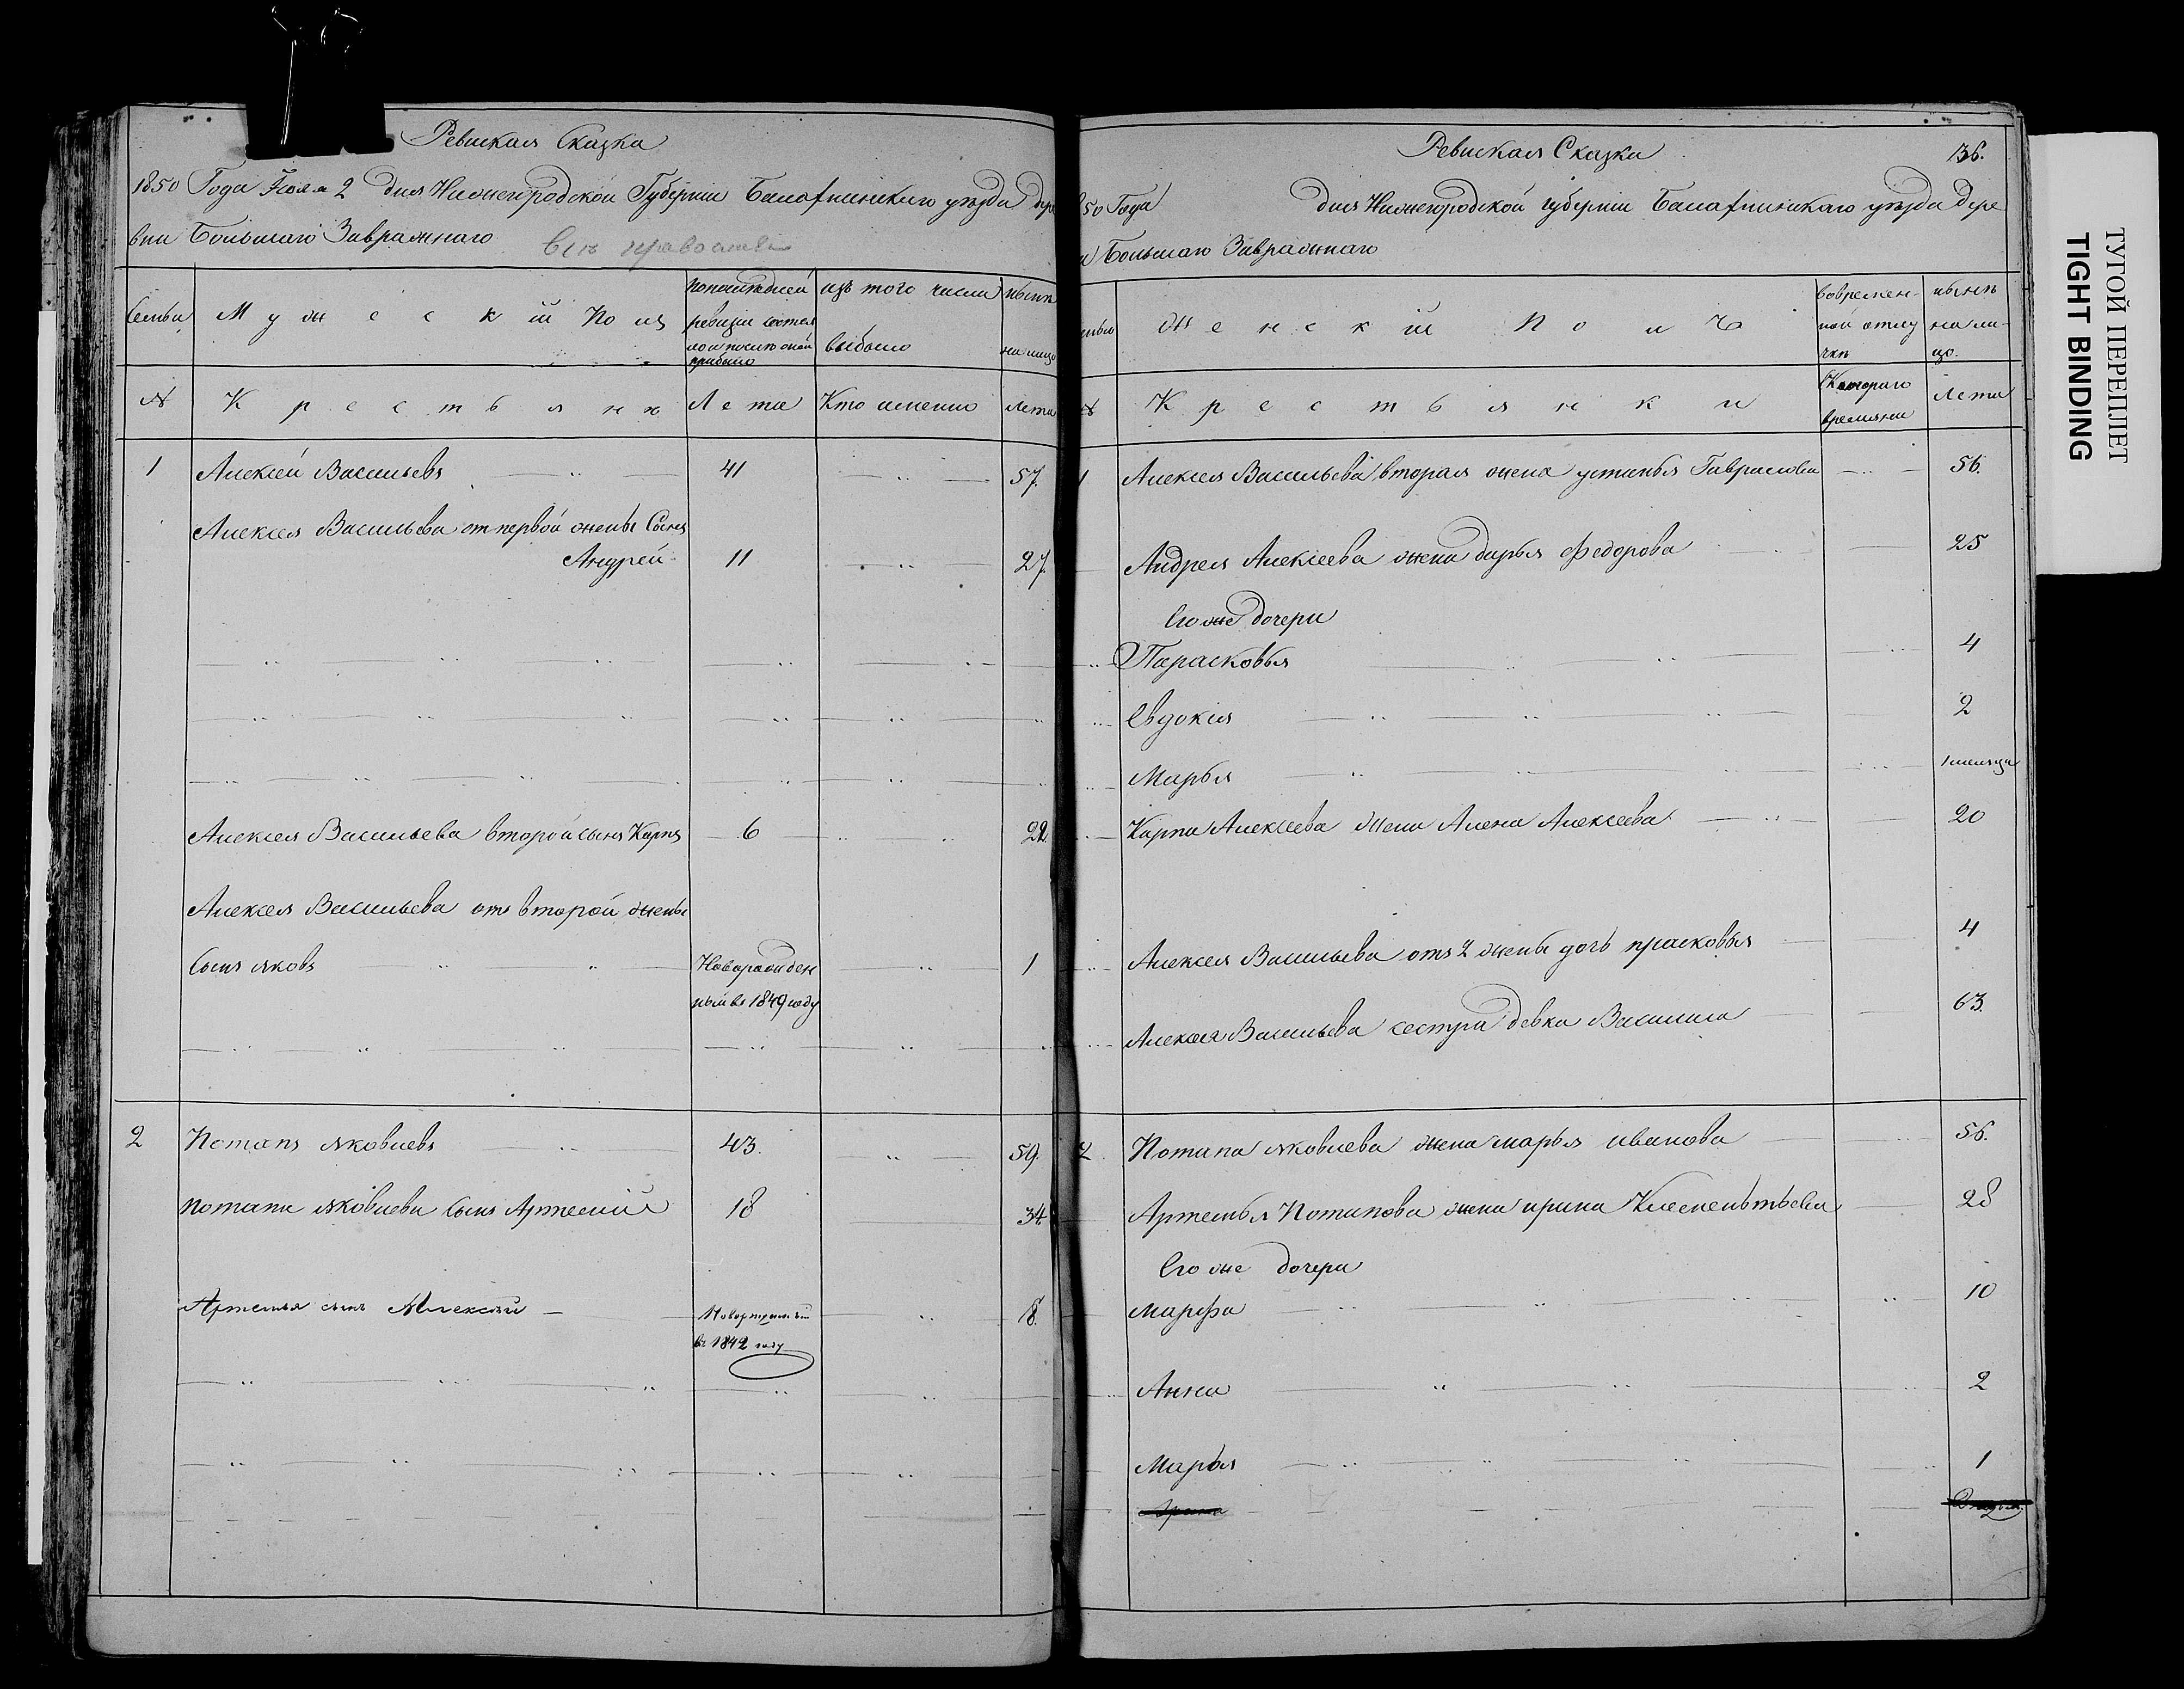 Ревиская Сказка
1850 Года Июля 2 дня Нижегородской Губернии Балахнинскаго уѣзда дере
вни Большаго Завражнаго
Семьи
Мужеский Полъ
попоследней
ревизии состоя
ло и после оной
прибыло
изъ того числа
выбыло
ныне
на лицо
№
Крестьяне
Лета
Кто именно
Лета
1 Алексей Васильевъ 41 57.
Алексея Васильева от первой жены Сынъ
Андрей 11 27.
Алексея Васильева второй сынъ Карпъ 6 22.
Алексея Васильева отъ второй жены
Сынъ яковъ Новорожден 1
ный въ 1849 году
2 Потапъ яковлевъ 43. 59.
потапа яковлева Сынъ Артемий 18 34
Артемья сынъ Алексей 8.
въ 1842 году
Ревиская Сказка 136.
850 Года дня Нижегородской губернии Балахнинскаго уѣзда Дере
и Большаго Завражнаго
Женский Полъ
вовремен-
ной отлу
чке
ныне
на ли-
цо.
№
Крестьянки
Котораго
времяни
Лета
1 Алексея Васильева вторая жена устинья Гаврилова 56.
Андрея Алексеева жена дарья федорова 25
Его же дочери
Парасковья 4
Евдокия 2
Марья 1 месяца
Карпа Алексеева Жена Алена Алексеева 20
Алексея Васильева отъ 2 жены дочь прасковья 4
Алексея Васильева сестра девка Василиса 63.
2 Потапа яковлева жена марья иванова 56.
Артемья Потапова жена ирина Клементьева 28
Его же дочери
марфа 10
Анна 2
Марья 1
ТУГОЙ ПЕРЕПЛЕТ
TIGHT BINDING